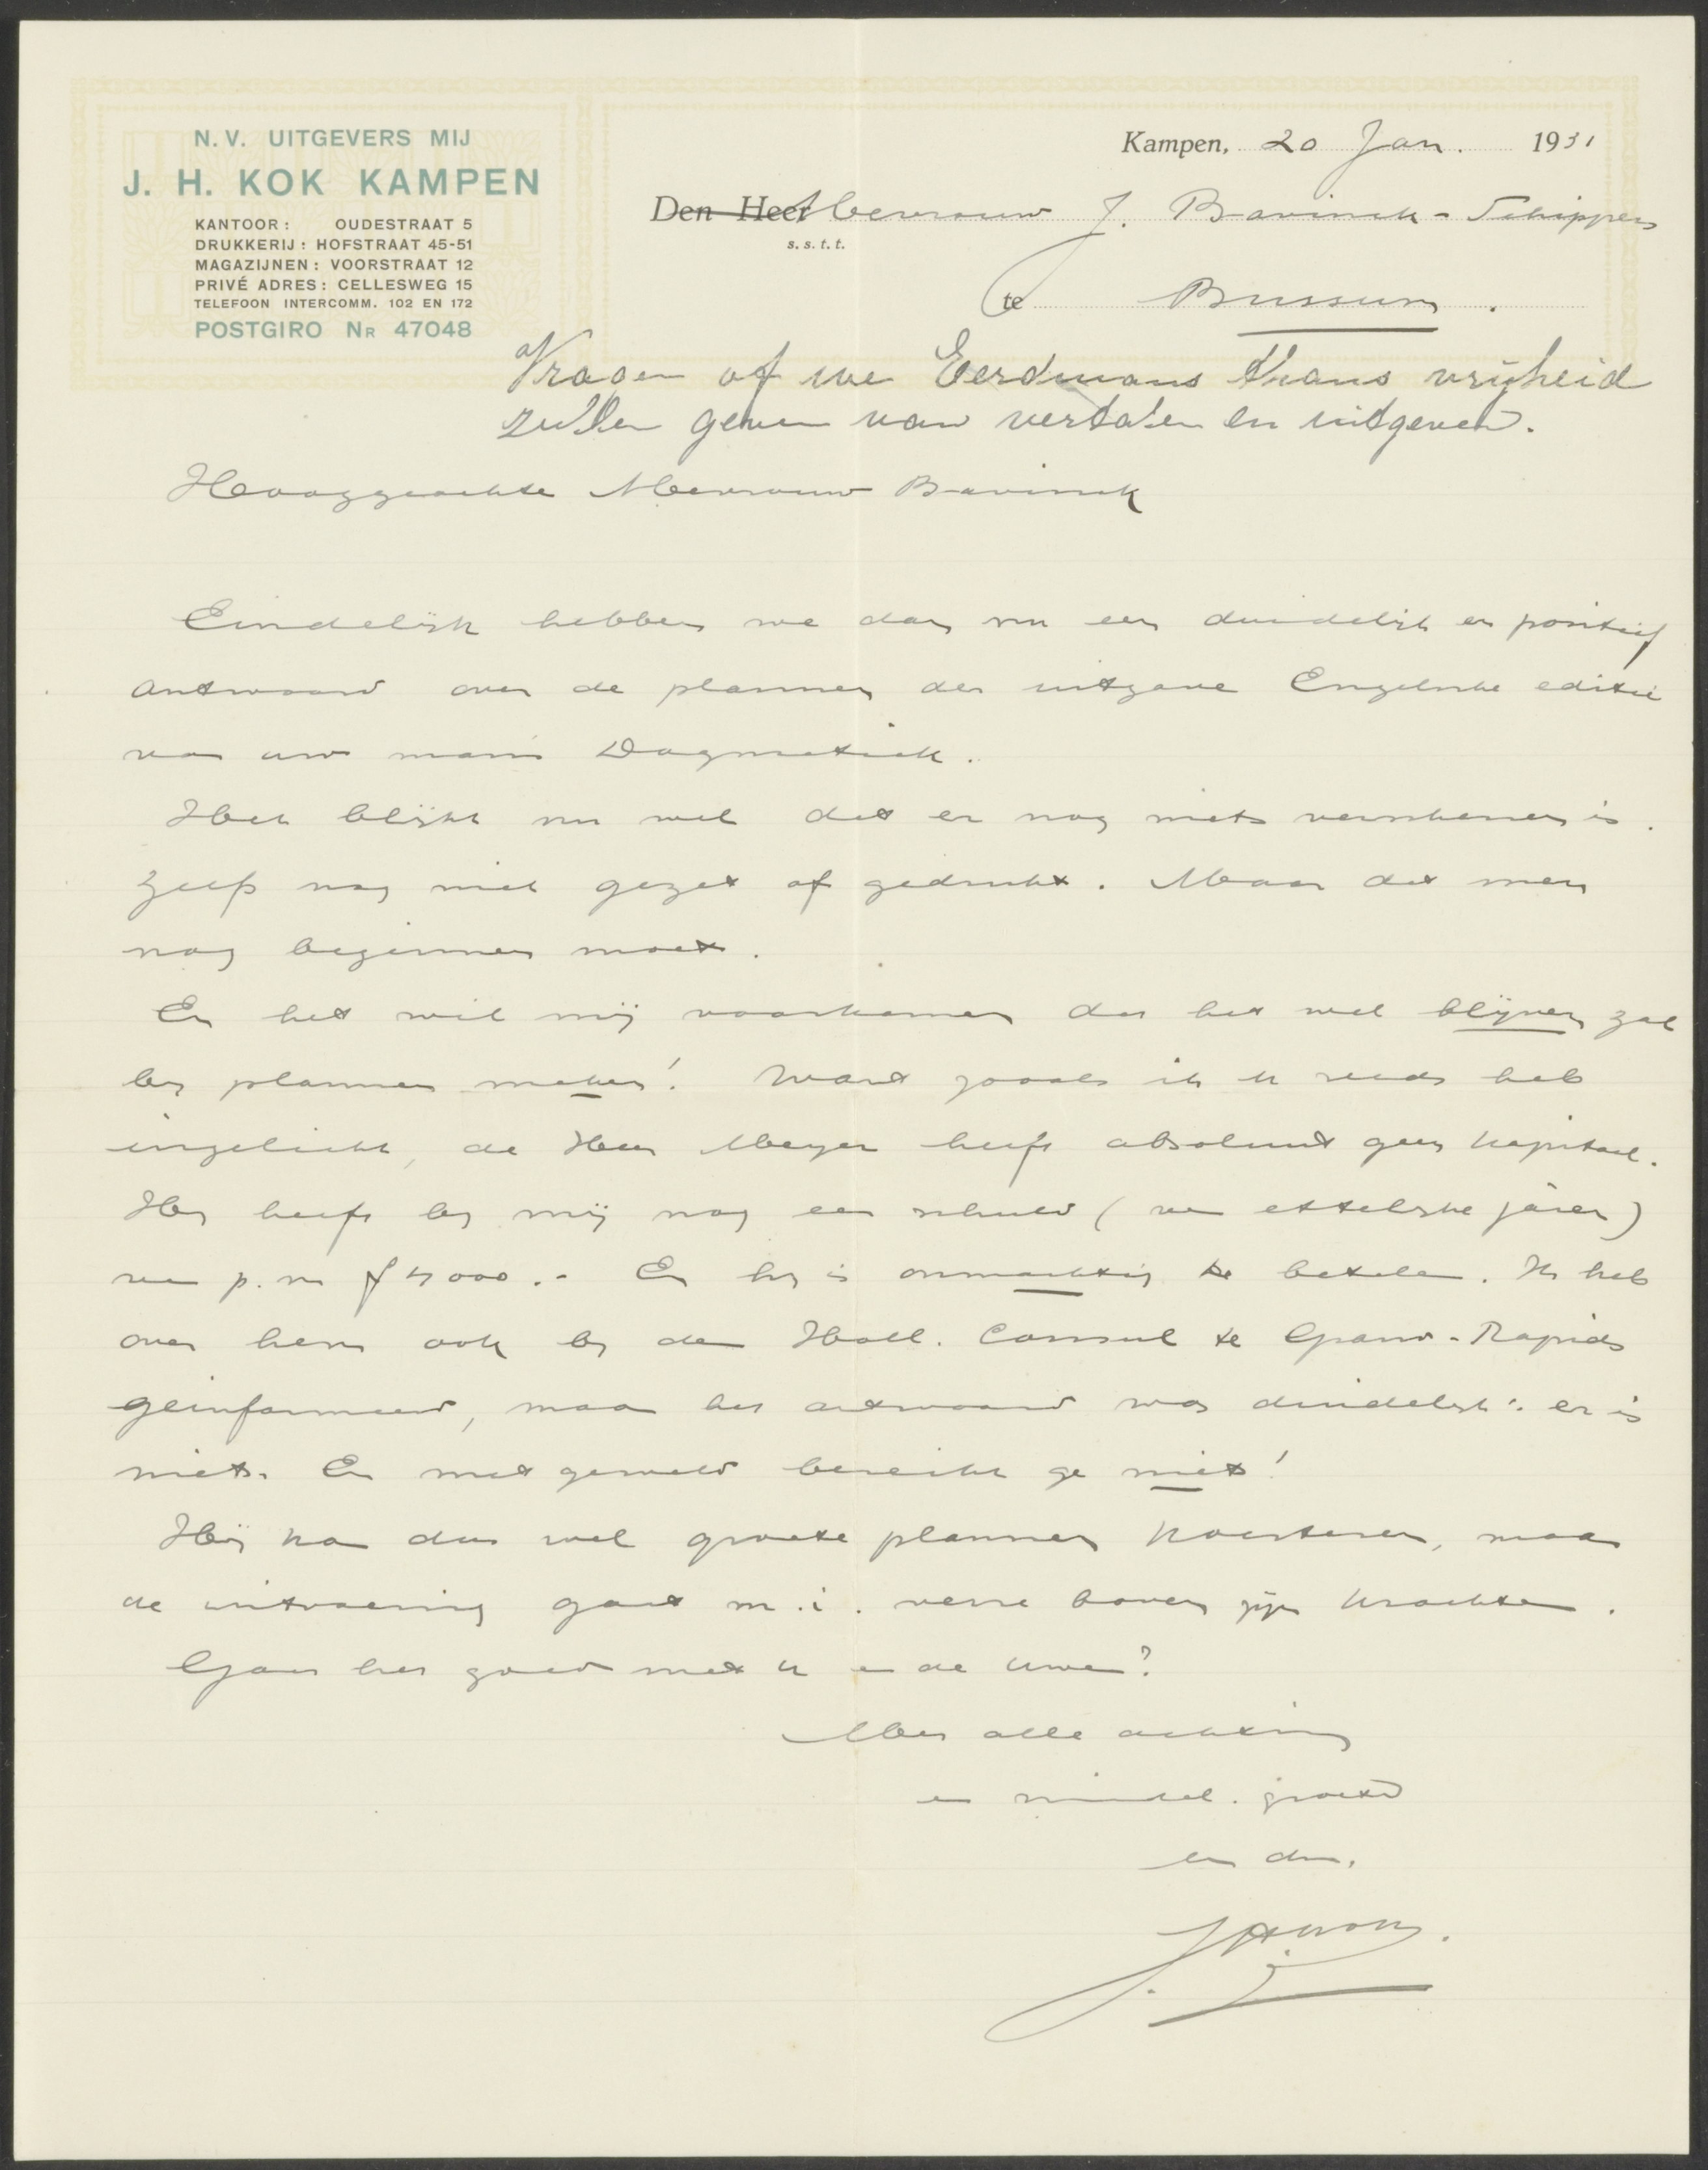 N.V. UITGEVERS MIJ
J. H. KOK KAMPEN
KANTOOR: OUDESTRAAT 5
DRUKKERIJ: HOFSTRAAT 45-51
MAGAZIJNEN: VOORSTRAAT 12
PRIVÉ ADRES: CELLESWEG 15
TELEFOON INTERCOMM. 102 EN 172
POSTGIRO NR 47048
Kampen, 20 Jan. 1931
Den Heer Mevrouw J. Bavinck-Schippers
s.s.t.t.
te Bussum.
Vragen of we Eerdmans thans vrijheid
zullen geven van vertalen en uitgeven.
Hooggeachte Mevrouw Bavinck
Eindelijk hebben we dan nu een duidelijk en positief
antwoord over de plannen der uitgave Engelsche editie
van uw man's Dogmatiek.
Het blijkt nu wel dat er nog niets verschenen is.
Zelfs nog niet gezet of gedrukt. Maar dat men
nog beginnen moet.
En het wil mij voorkomen dat het wel blijven zal
bij plannen maken! Want zooals ik U reeds heb
ingelicht, de Heer Meyer heeft absoluut geen kapitaal.
Hij heeft bij mij nog een schuld (van ettelijke jaren)
van p.m. f 4000.- En hij is onmachtig te betalen. Ik heb
over hem ook bij den Holl. Consul te Grand-Rapids
geinformeerd, maar het antwoord was duidelijk: er is
niets. En met geweld bereikt ge niets!
Hij kan dus wel groote plannen koesteren, maar
de uitvoering gaat m.i. verre boven zijn krachten.
Gaat het goed met U en de Uwen?
Met alle achting
en vriendel. groeten
uw dw.
JHKok.